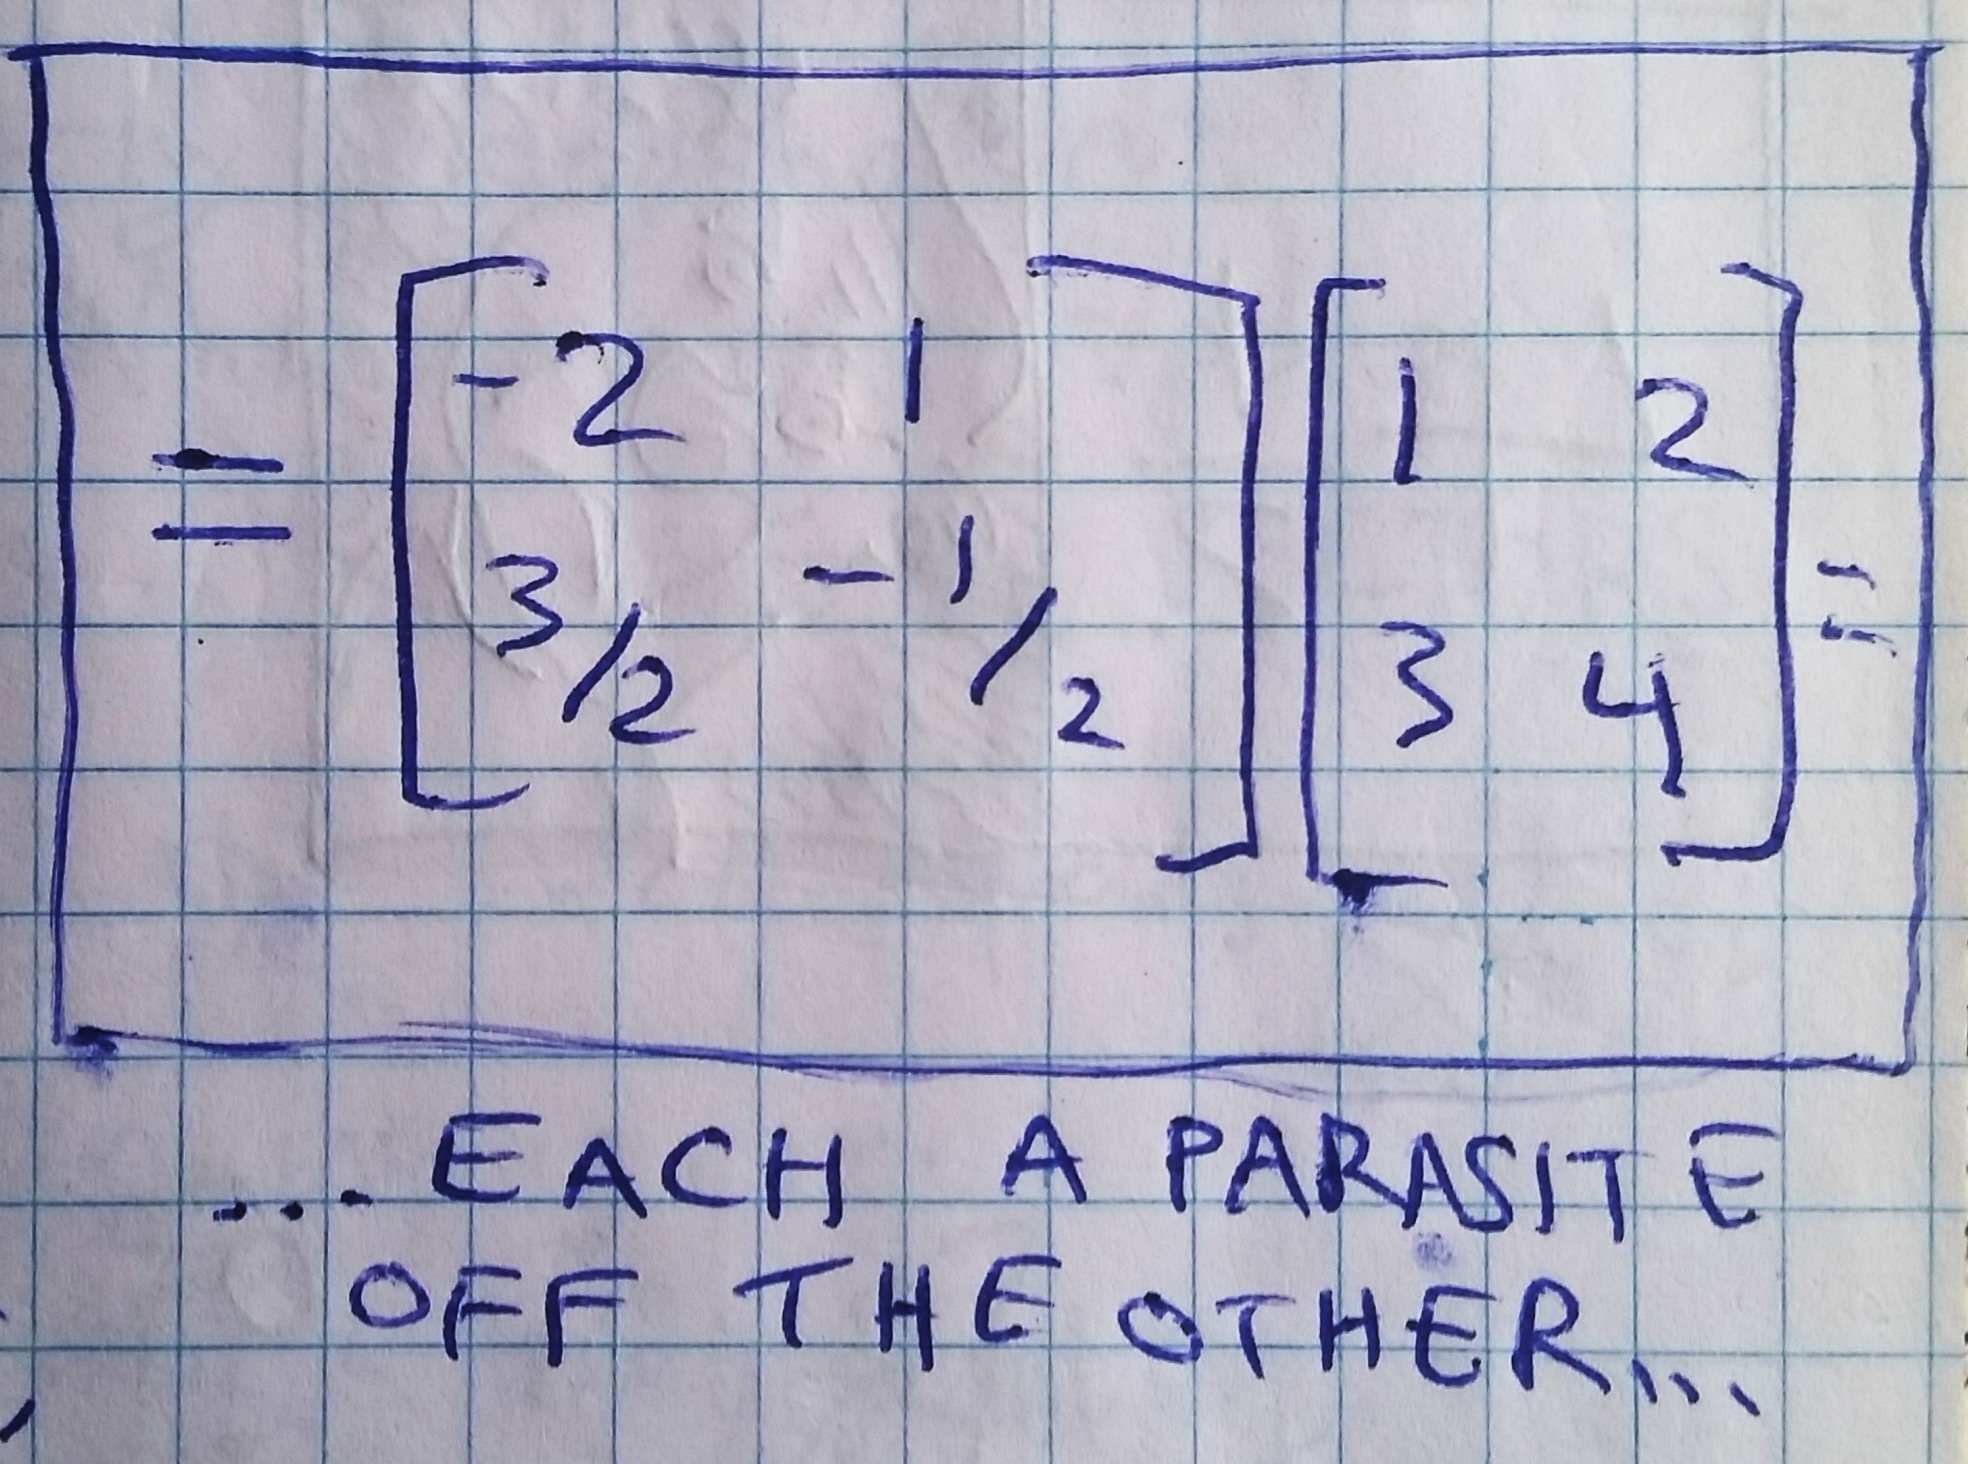 = [ -2 1 ] [ 1 2 ] =
[ 3/2 -1/2 ] [ 3 4 ]
...EACH A PARASITE
OFF THE OTHER...